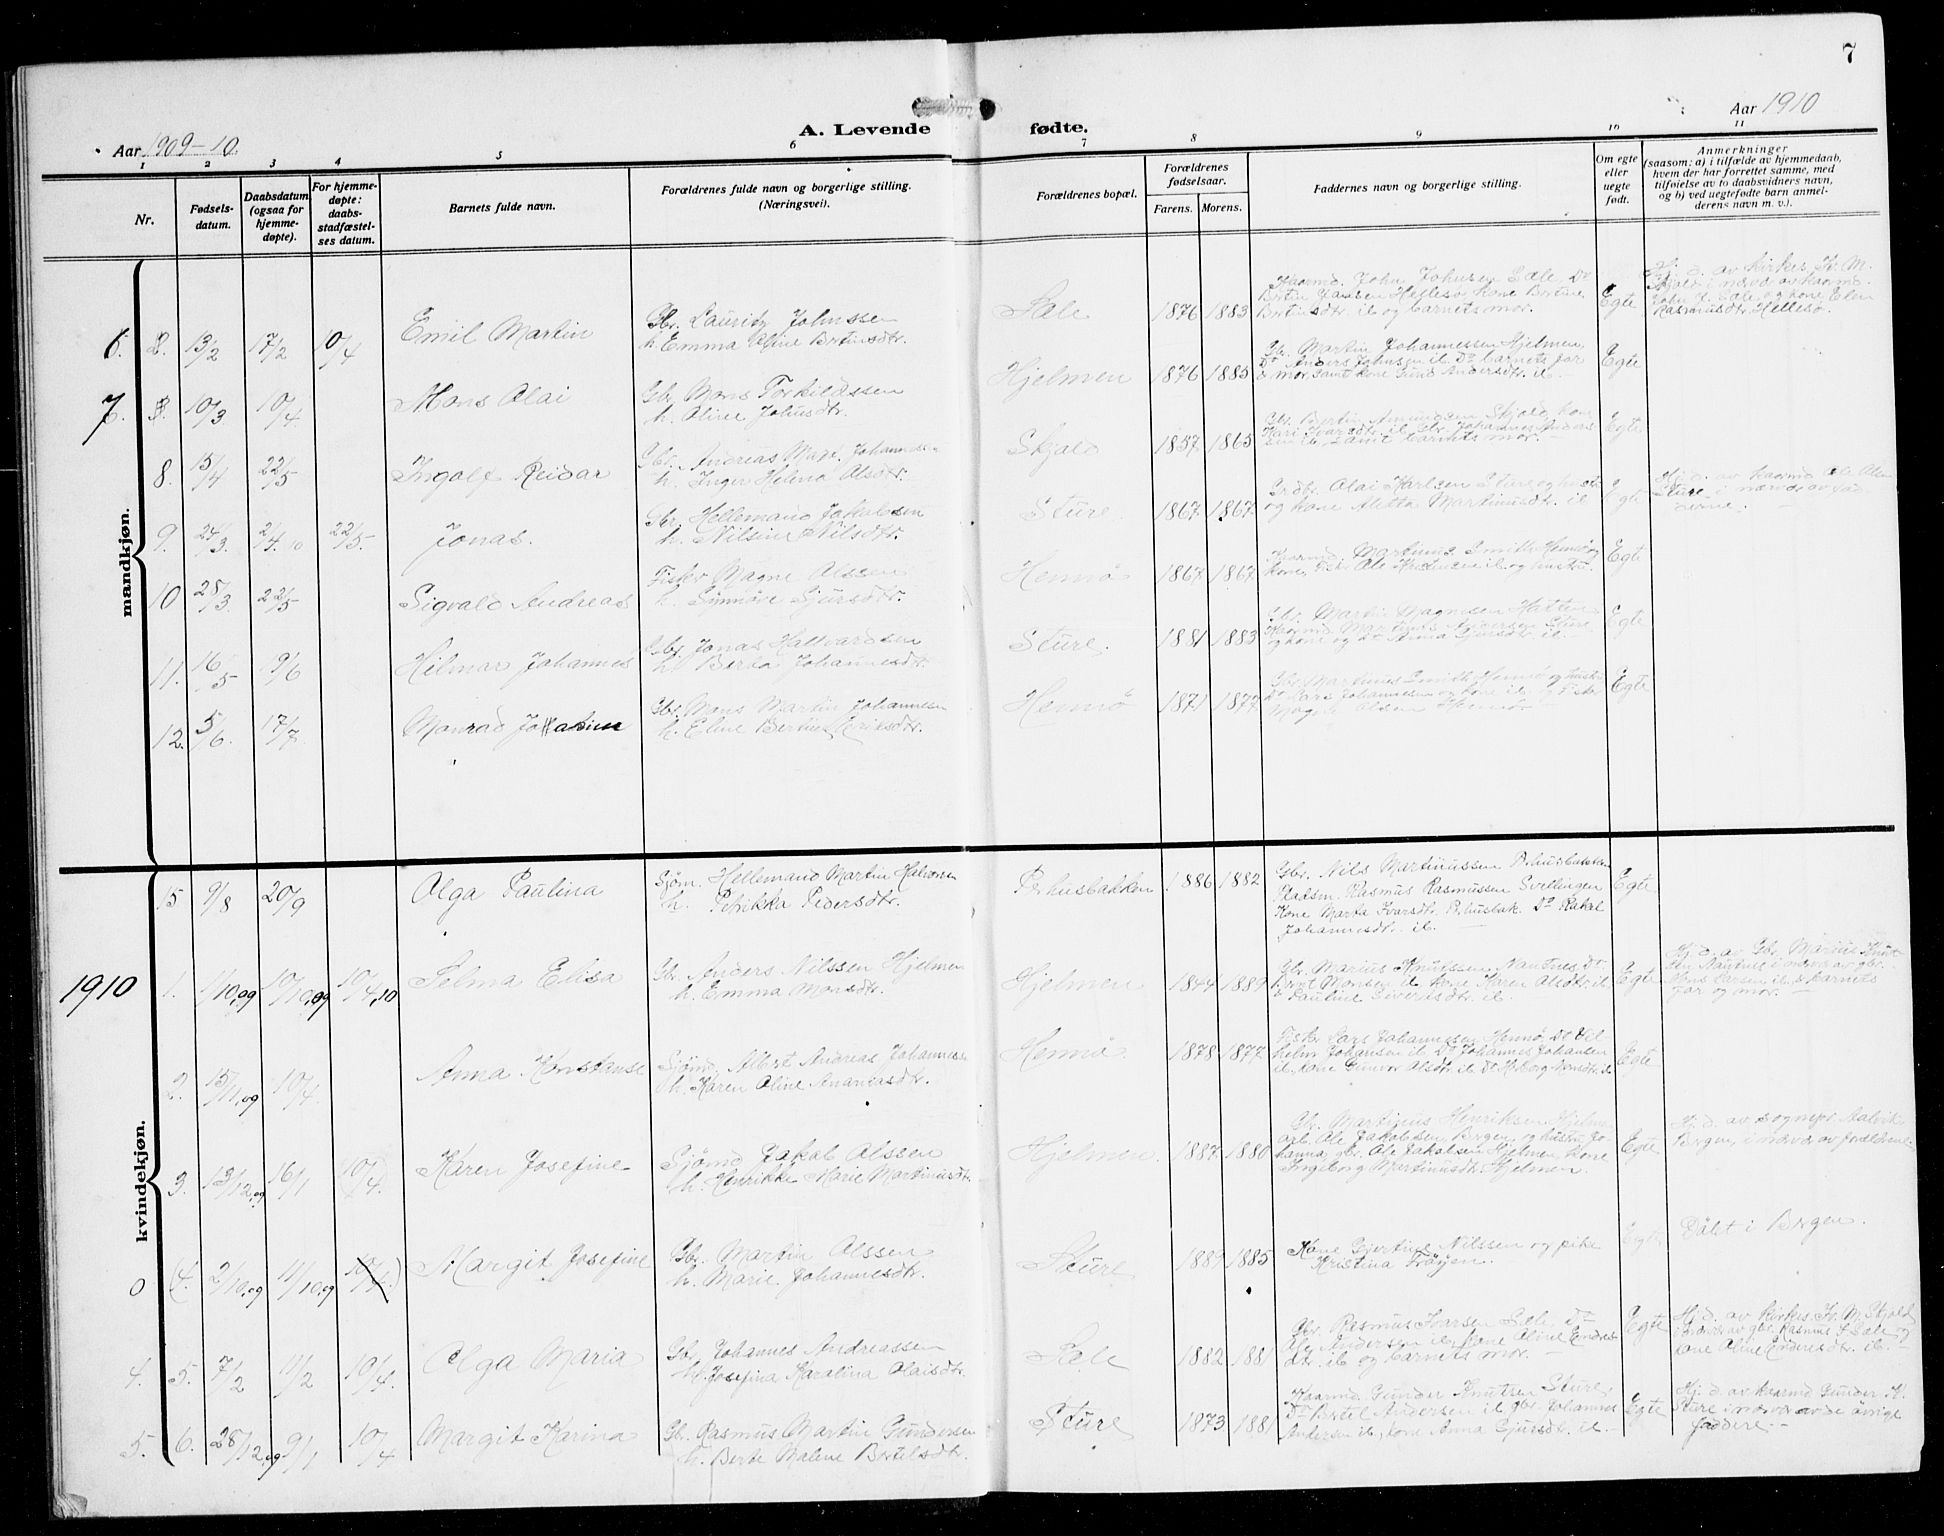 7
Aar 1909-10.
A. Levende
fødte.
Aar 1910
1 2 3 4 5 6 7 8 9 10 11
Nr.
Fødsels-
datum.
Daabsdatum
(ogsaa for
hjemme-
døpte).
For hjemme-
døpte:
daabs-
stadfæstel-
ses datum.
Barnets fulde navn.
Forældrenes fulde navn og borgerlige stilling.
(Næringsvei).
Forældrenes bopæl.
Forældrenes
fødselsaar.
Farens. Morens.
Faddernes navn og borgerlige stilling.
Om egte
eller
uegte
født.
Anmerkninger
(saasom: a) i tilfælde av hjemmedaab,
hvem der har forrettet samme, med
tilføielse av to daabsvidners navn,
og b) ved uegtefødte barn anmel-
derens navn m. v.).
mandkjøn.
6. 13/2 17/2 10/4 Emil Martin
Gbr. Lauritz Johnssen
h. Emma Oline Bertinsdtr.
Sæle 1876 1883
Kaarmd. John Johnsen Sæle Do
Bertin Hellesø kone Bertine
Bertinsdtr. ib og barnets mor.
Egte
Hj. d. av Kirkes. K. M.
Skjold i nærvær av kaarmd.
John J. Sæle og kone Elen
Rasmusdtr. Hellesø.
7. 10/3 10/4 Mons Olai
Gbr. Mons Torkildssen
h. Oline Johnsdtr.
Hjelmen 1876 1885
Gbr. Martin Johannessen Hjelmen,
Do Anders Johnsen ib. Do barnets far
& mor samt kone Gund Andersdtr. ib.
Egte
8. 15/4 22/5 Ingolf Reidar
Gbr. Andreas Mage Johannessen
h. Inger Helena Olsdtr.
Skjold 1857 1865
Gbr. Bertin Amundsen Skjold, kone
Kari Ivarsdtr. ib, Gbr. Johannes Anders
sen ib, samt barnets mor.
Egte
9. 24/3 2/4 10 22/5. Jonas.
Gbr. Hellemand Jakobsen
h. Nilsine Nilsdtr.
Sture. 1867 1867
Olai Karlsen Sture og hustr
og kone Aletta Martinusdtr. ib
Egte
Hj. d. av kaarmd Ole Olsen
Sture i nærvær av fad
derne.
10 28/3 22/5 Sigvald Andreas
Fisker Magne Olssen
h. Synnøve Sjursdtr.
Hennø 1867 1867
Kaarmd. Martinus Smith Hennø og
kone, Fisk. Ole Kristensen ib. og hustru
Egte
11. 16/5 9/6 Hilmar Johannes
Gbr. Jonas Hallvardsen
h. Berta Johannesdtr.
Sture. 1881 1883
Gbr. Martin Magnesen Hatten
Kaarmd. Martinus Andersen Sture
og kone og Do Anna Sjursdtr. ib.
Egte
12. 5/6. 17/7 Manrad Joakim
Gbr. Mons Martin Johannesen
h. Eline Bertine
Hennø 1871 1877
Gbr. Martinus Smith Hennø og hustru
Do Lars Johannesen og kone ib. og Fisker
Magne Olsen Hennø
Egte
kvindekjøn.
15 9/8 20/9 Olga Paulina
Sjøm. Hellemand Martin Halvorsen
h. Petrikka Pedersdtr.
Prhusbakken 1886 1882
Gbr. Nils Martinussen Prhusbakken
Pladsm. Rasmus Rasmussen Svellingen
Kone Marta Ivarsdtr. Prhusbak. Do Rakel
Johannesdtr. ib.
Egte
1910 1. 1/10.09 10/10.09 10/4.10 Selma Elisa
Gbr Anders Nilssen Hjelmen
h. Emma Monsdtr.
Hjelmen 1844 1889
Gbr. Marius Knutssen Nautnes, Do
Monsen ib kone Karen Olsdtr. ib
& Pauline Sivertsdtr. ib.
Egte
Hj. d. av Gbr. Marius Knut
sen Nautnes i nærvær av gbr.
Mons Larsen ib, & barnets
far og mor.
2. 15/11.09 10/4. Anna Konstanse
Sjømd. Albert Andreas Johannessen
h. Karen Oline Ananiasdtr.
Hennø. 1878 1877
Fisker Lars Johannessen Hennø, Do Vil
helm Johansen ib. Do Johannes Johansen
ib, kone Gunvor Olsdtr. ib. Do Herborg Monsdtr. ib
Egte
3. 13/12.09 16/1 10/4. Karen Josefine
Sjømd Jakob Olssen
h. Henrikke Marie Martinusdtr.
Hjelmen. 1887 1880
Gbr. Martinus Henriksen Hjelmen
arb. Ole Jakobsen Bergen, og hustru Jo
hanna, gbr. Ole Jakobsen Hjelmen, kone
Ingeborg Martinusdtr. Hjelmen.
Egte
Hj. d. av sognepr. Aalvik
Bergen, i nærvær av forældrene
0 (4. 2/10.09 11/10.09 10/4) Margit Josefine
Gbr. Martin Olssen
h. Marie Johannesdtr.
Sture 1889 1885
Kone Gjertine Nilssen og pike
Kristina Frøyen.
Egte
Døbt i Bergen.
4. 5. 7/2 11/2 10/4. Olga Maria
Gbr. Johannes Andreassen
h. Josefina Karalina Olaisdtr.
Sæle 1882 1881
Gbr. Rasmus Ivarsen Sæle, Do
Ole Andersen ib, kone Oline Endres
dtr. ib og barnets mor.
Egte
Hj. d. av Kirkes. K. M. Skjold
i nærvær av gbr. Rasmus I. Sæle og
kone Oline Endresdtr. ib.
5. 6. 28/12.09 9/1 10/4 Margit Karina
Gbr. Rasmus Martin Gundersen
h. Berte Malene Bertelsdtr.
Sture 1873 1881
Kaarmd. Gunder Knutsen Sture,
Do Bertel Andersen ib gbr. Johannes
Andersen ib, kone Anna Sjursdtr. ib.
Egte
Hj. d. av kaarmd Gunder K.
Sture i nærvær av de øvrige
faddere.